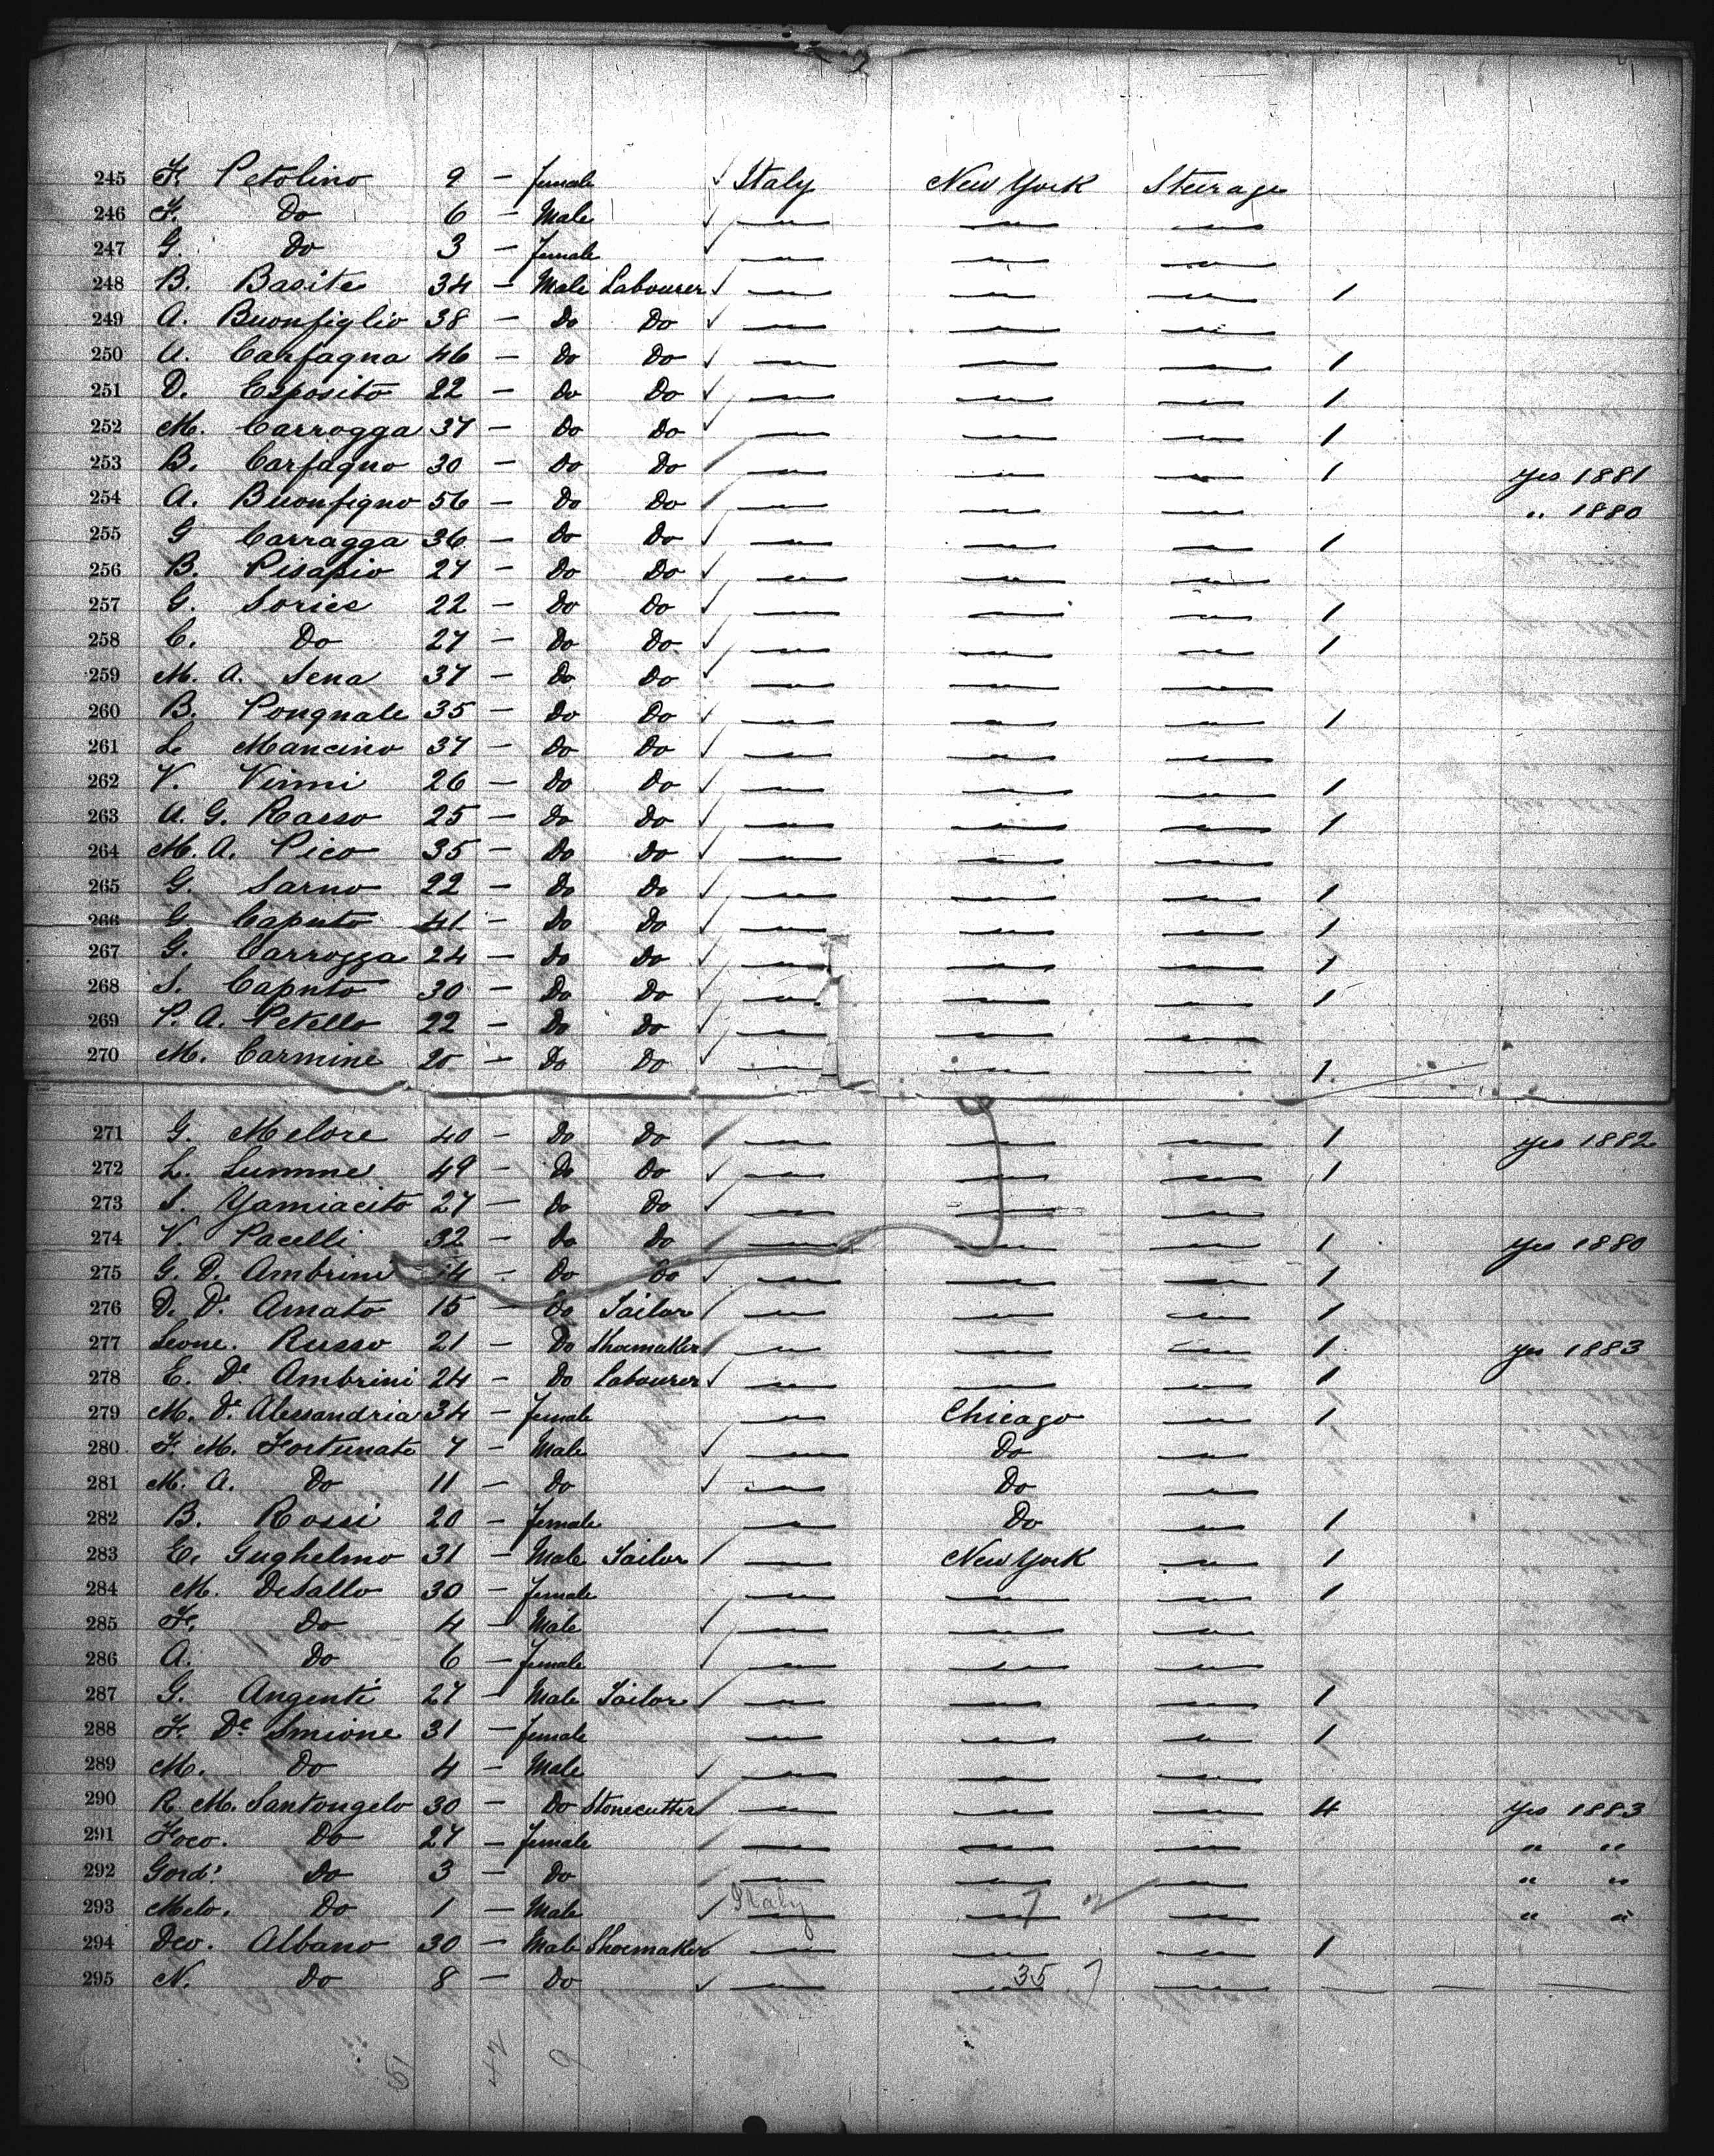 245 F. Petolino 9 — female ✓ Italy New York Steerage
246 F. Do 6 — Male ✓ — " — — " — — " —
247 G. Do 3 — female ✓ — " — — " — — " —
248 B. Basite 34 — Male Labourer ✓ — " — — " — — " — 1
249 A. Buonfiglio 38 — Do Do ✓ — " — — " — — " —
250 A. Carfagna 46 — Do Do ✓ — " — — " — — " — 1
251 D. Esposito 22 — Do Do ✓ — " — — " — — " — 1
252 M. Carrogga 37 — Do Do ✓ — " — — " — — " — 1
253 B. Carfagno 30 — Do Do / — " — — " — — " — 1 yes 1881
254 A. Buonfigno 56 — Do Do / — " — — " — — " — " 1880
255 G Carragga 36 — Do Do ✓ — " — — " — — " — 1
256 B. Pisapio 27 — Do Do ✓ — " — — " — — " —
257 G. Sorice 22 — Do Do ✓ — " — — " — — " — 1
258 C. Do 27 — Do Do ✓ — " — — " — — " — 1
259 M. A. Sena 37 — Do Do ✓ — " — — " — — " —
260 B. Pongnale 35 — Do Do ✓ — " — — " — — " — 1
261 L. Mancino 37 — Do Do ✓ — " — — " — — " —
262 V. Vinni 26 — Do Do ✓ — " — — " — — " — 1
263 A. G. Rasso 25 — Do Do ✓ — " — — " — — " — 1
264 M. A. Pico 35 — Do Do ✓ — " — — " — — " —
265 G. Sarno 22 — Do Do ✓ — " — — " — — " — 1
266 G Caputo 41 — Do Do ✓ — " — — " — — " — 1
267 G. Carrozza 24 — Do Do ✓ — " — — " — — " — 1
268 S. Caputo 30 — Do Do ✓ — " — — " — — " — 1
269 P. A. Petello 22 — Do Do ✓ — " — — " — — " —
270 M. Carmine 20 — Do Do ✓ — " — — " — — " — 1.
271 G. Melore 40 — Do Do / — " — — " — — " — 1 yes 1882
272 L. Summe 49 — Do Do ✓ — " — — " — — " — 1
273 S. Yamiacito 27 — Do Do ✓ — " — — " — — " —
274 V. Pacelli 32 — Do Do / — " — — " — — " — 1 yes 1880
275 G. D. Ambrini 14 — Do Do ✓ — " — — " — — " — 1
276 D. De Amato 15 — Do Tailor / — " — — " — — " — 1
277 Leone. Russo 21 — Do Shoemaker / — " — — " — — " — 1 yes 1883
278 E. De Ambrini 24 — Do Labourer ✓ — " — — " — — " — 1
279 M. De Alessandria 34 — female — " — Chicago — " — 1
280 F. M. Fortunato 7 — Male ✓ — " — Do — " —
281 M. A. Do 11 — Do ✓ — " — Do — " —
282 B. Rossi 20 — female — " — Do — " — 1
283 E. Gughelmo 31 — Male Tailor / — " — New York — " — 1
284 M. DeSallo 30 — female — " — — " — — " — 1
285 F. Do 4 — Male ✓ — " — — " — — " —
286 A. Do 6 — female ✓ — " — — " — — " —
287 G. Angenti 27 — Male Tailor / — " — — " — — " — 1
288 F. De Smione 31 — female — " — — " — — " — 1
289 M. Do 4 — Male ✓ — " — — " — — " —
290 R. M. Santongelo 30 — Do Stonecutter / — " — — " — — " — 4 yes 1883
291 Foco. Do 27 — female / — " — — " — — " — " "
292 Gord. Do 3 — Do / — " — — " — — " — " "
293 Melo. Do 1 — Male ✓ Italy — " — 7 2 — " — " "
294 Deo. Albano 30 — Male Shoemaker ✓ — " — — " — — " — 1
295 N. Do 8 — Do ✓ — " — 35 7 — " — — — —
51 42 9